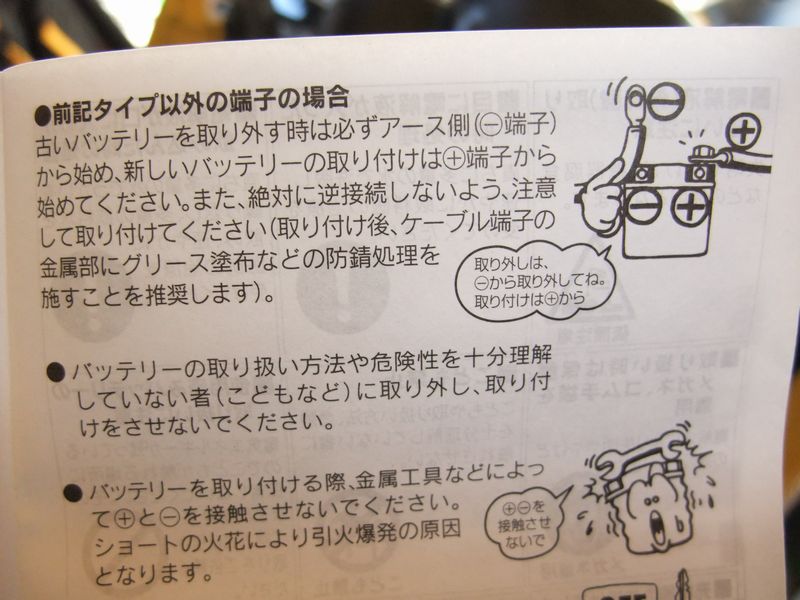 ●前記タイプ以外の端子の場合
古いバッテリーを取り外す時は必ずアース側(⊖端子)
から始め、新しいバッテリーの取り付けは⊕端子から
始めてください。また、絶対に逆接続しないよう、注意
して取り付けてください(取り付け後、ケーブル端子の
金属部にグリース塗布などの防錆処理を
施すことを推奨します)。
⊖
⊕
⊖ ⊕
取り外しは、
⊖から取り外してね。
取り付けは⊕から
●バッテリーの取り扱い方法や危険性を十分理解
していない者(こどもなど)に取り外し、取り付
けをさせないでください。
●バッテリーを取り付ける際、金属工具などによっ
て⊕と⊖を接触させないでください。
ショートの火花により引火爆発の原因
となります。
⊕⊖を
接触させ
ないで